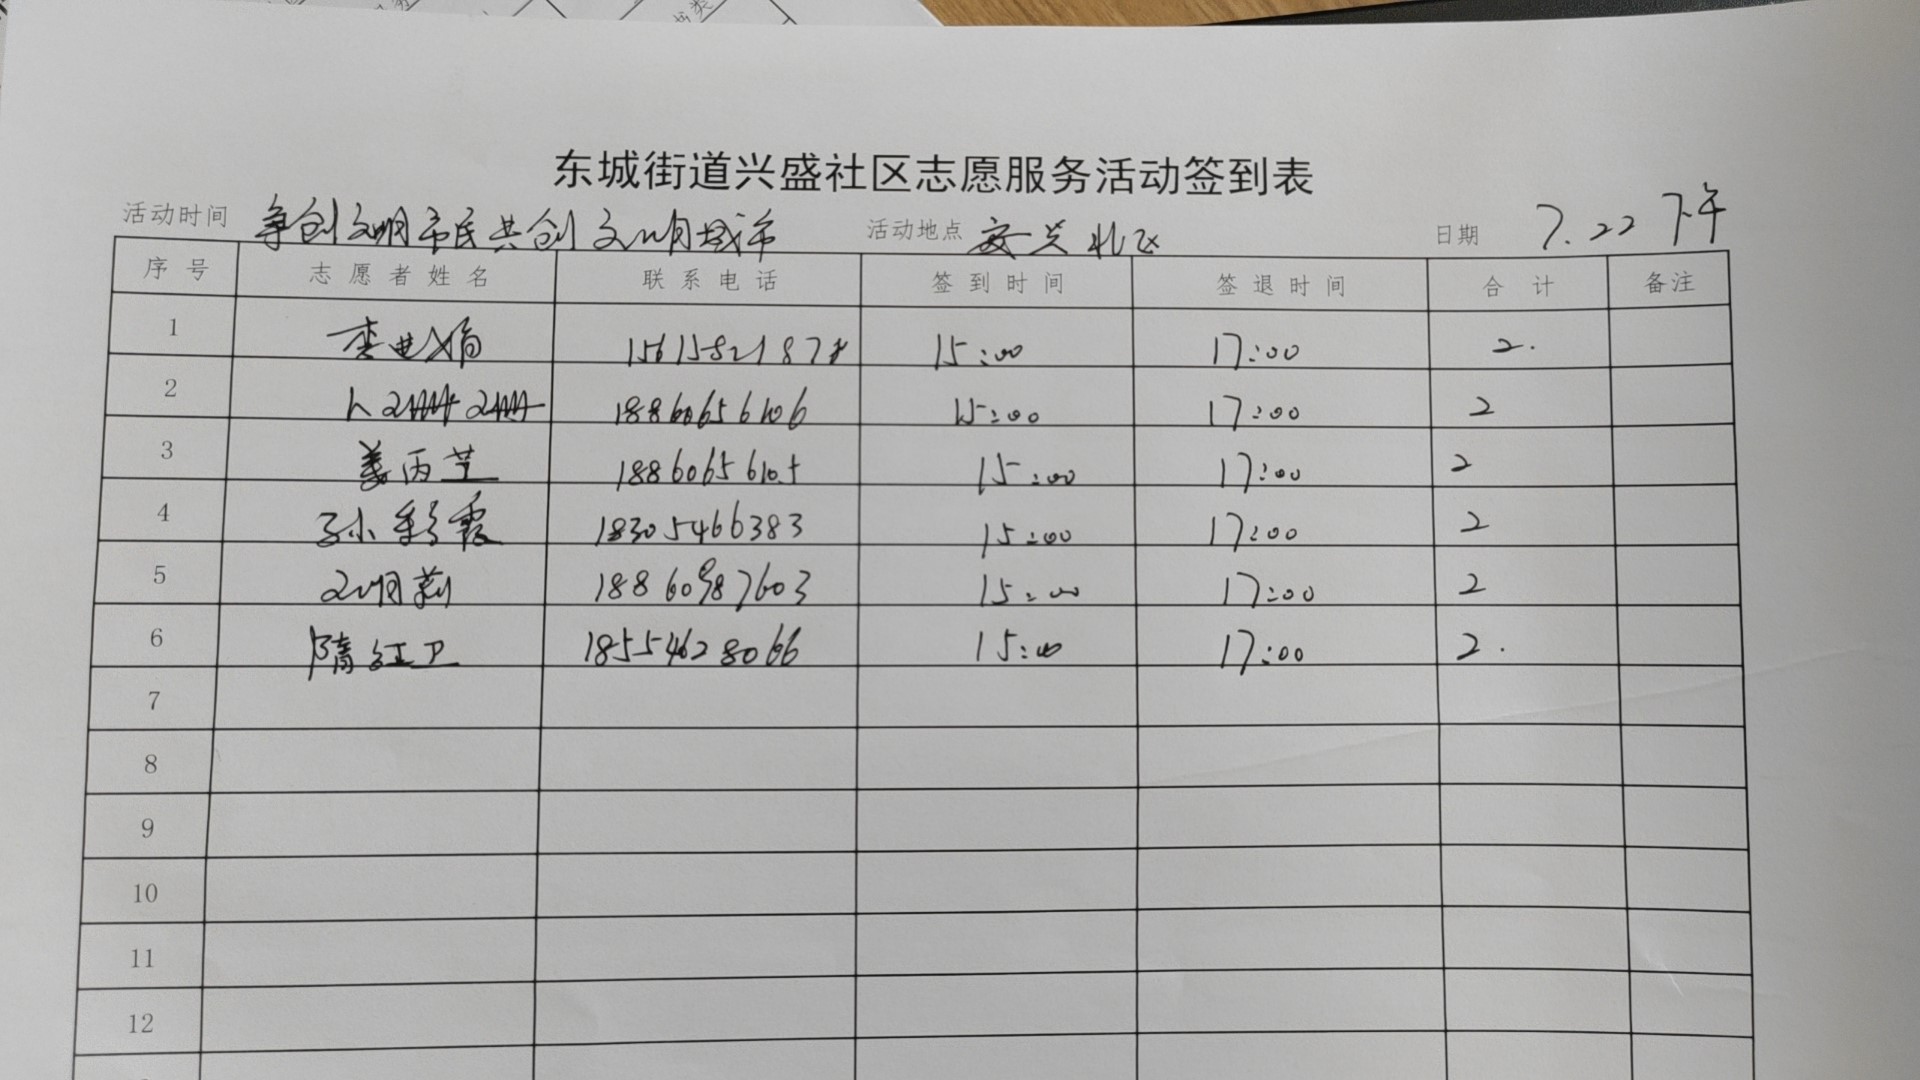 东城街道兴盛社区志愿服务活动签到表
活动时间 争创文明市民共创文明城市 活动地点 安兴北区 日期 7.22 下午
序号 志愿者姓名 联系电话 签到时间 签退时间 合计 备注
1 1561582187 15:00 17:00 2.
2 18860656106 15:00 17:00 2
3 姜丙芝 18860656105 15:00 17:00 2
4 孙彩霞 18305466383 15:00 17:00 2
5 18860987603 15:00 17:00 2
6 隋红卫 18554628066 15:00 17:00 2.
7
8
9
10
11
12